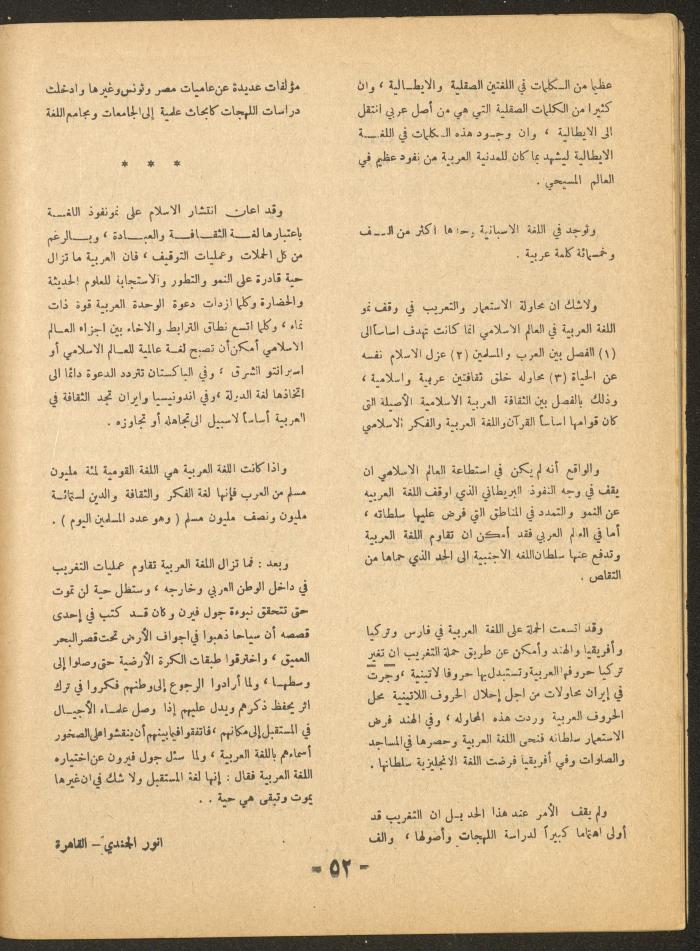 عظيما من الكلمات في اللغتين الصقلية والايطالية ، وان
كثيرا من الكلمات الصقلية التي هي من أصل عربي انتقل
الى الايطالية ، وان وجود هذه الكلمات في اللغة
الايطالية ليشهد بما كان للمدنية العربية من نفوذ عظيم في
العالم المسيحي .
وتوجد في اللغة الاسبانية وحدها اكثر من الف
وخمسمائة كلمة عربية .
ولاشك ان محاولة الاستعمار والتعريب في وقف نمو
اللغة العربية في العالم الاسلامي انما كانت تهدف اساسا الى
(١) الفصل بين العرب والمسلمين (٢) عزل الاسلام نفسه
عن الحياة (٣) محاوله خلق ثقافتين عربية واسلامية ،
وذلك بالفصل بين الثقافة العربية الاسلامية الأصيلة التى
كان قوامها اساسا القرآن واللغة العربية والفكر الاسلامي
والواقع أنه لم يكن في استطاعة العالم الاسلامي ان
يقف في وجه النفوذ البريطاني الذي اوقف اللغة العربيه
عن النمو والتمدد في المناطق التي فرض عليها سلطاته ،
أما في العالم العربي فقد أمكن ان تقاوم اللغة العربية
وتدفع عنها سلطان اللغه الاجنبية الى الحد الذي حماها من
التقاص .
وقد اتسعت الحملة على اللغة العربية في فارس وتركيا
وأفريقيا والهند وأمكن عن طريق حملة التغريب ان تغير
تركيا حروفها العربية وتستبدل بها حروفا لاتينية ، وجرت
في إيران محاولات من اجل إحلال الحروف اللاتينية محل
الحروف العربية وردت هذه المحاوله ، وفي الهند فرض
الاستعمار سلطانه فنحى اللغة العربية وحصرها في المساجد
والصلوات وفي أفريقيا فرضت اللغة الانجليزية سلطانها .
ولم يقف الأمر عند هذا الحد بل ان التغريب قد
أولى اهتماما كبيراً لدراسة اللهجات وأصولها ، والف
مؤلفات عديدة عن عاميات مصر وتونس وغيرها وادخلت
دراسات اللهجات كابحاث علمية إلى الجامعات ومجامع اللغة
* * *
وقد اعان انتشار الاسلام على نمو نفوذ اللغة
باعتبارها لغة الثقافة والعبادة ، وبالرغم
من كل الحملات وعمليات التوقيف ، فان العربية ما تزال
حية قادرة على النمو والتطور والاستجابة للعلوم الحديثة
والحضارة وكلما ازدات دعوة الوحدة العربية قوة ذات
نماء ، وكلما اتسع نطاق الترابط والاخاء بين اجزاء العالم
الاسلامي أمكن أن تصبح لغة عالمية للعالم الاسلامي أو
اسبرانتو الشرق ، وفي الباكستان تتردد الدعوة دائما الى
اتخاذها لغة الدولة ، وفي اندونيسيا وايران تجد الثقافة في
العربية أساساً لاسبيل الى تجاهله أو تجاوزه .
واذا كانت اللغة العربية هي اللغة القومية لمئة مليون
مسلم من العرب فإنها لغة الفكر والثقافة والدين لستمائة
مليون ونصف مليون مسلم ( وهو عدد المسلمين اليوم ) .
وبعد : فما تزال اللغة العربية تقاوم عمليات التغريب
في داخل الوطن العربي وخارجه ، وستظل حية لن تموت
حتى تتحقق نبوءة جول فيرن وكان قد كتب في إحدى
قصصه أن سياحا ذهبوا في اجواف الأرض تحت قصر البحر
العميق ، واخترقوا طبقات الكرة الأرضية حتى وصلوا إلى
وسطها ، ولما أرادوا الرجوع إلى وطنهم فكروا في ترك
اثر يحفظ ذكرهم ويدل عليهم إذا وصل علماء الأجيال
في المستقبل إلى مكانهم ، فاتفقوا فيما بينهم أن ينقشوا على الصخور
أسماءهم باللغة العربية ، ولما سئل جول فيرون عن اختياره
اللغة العربية فقال : إنها لغة المستقبل ولا شك في ان غيرها
يموت وتبقى هي حية . .
انور الجندي - القاهرة
- ٥٢ -